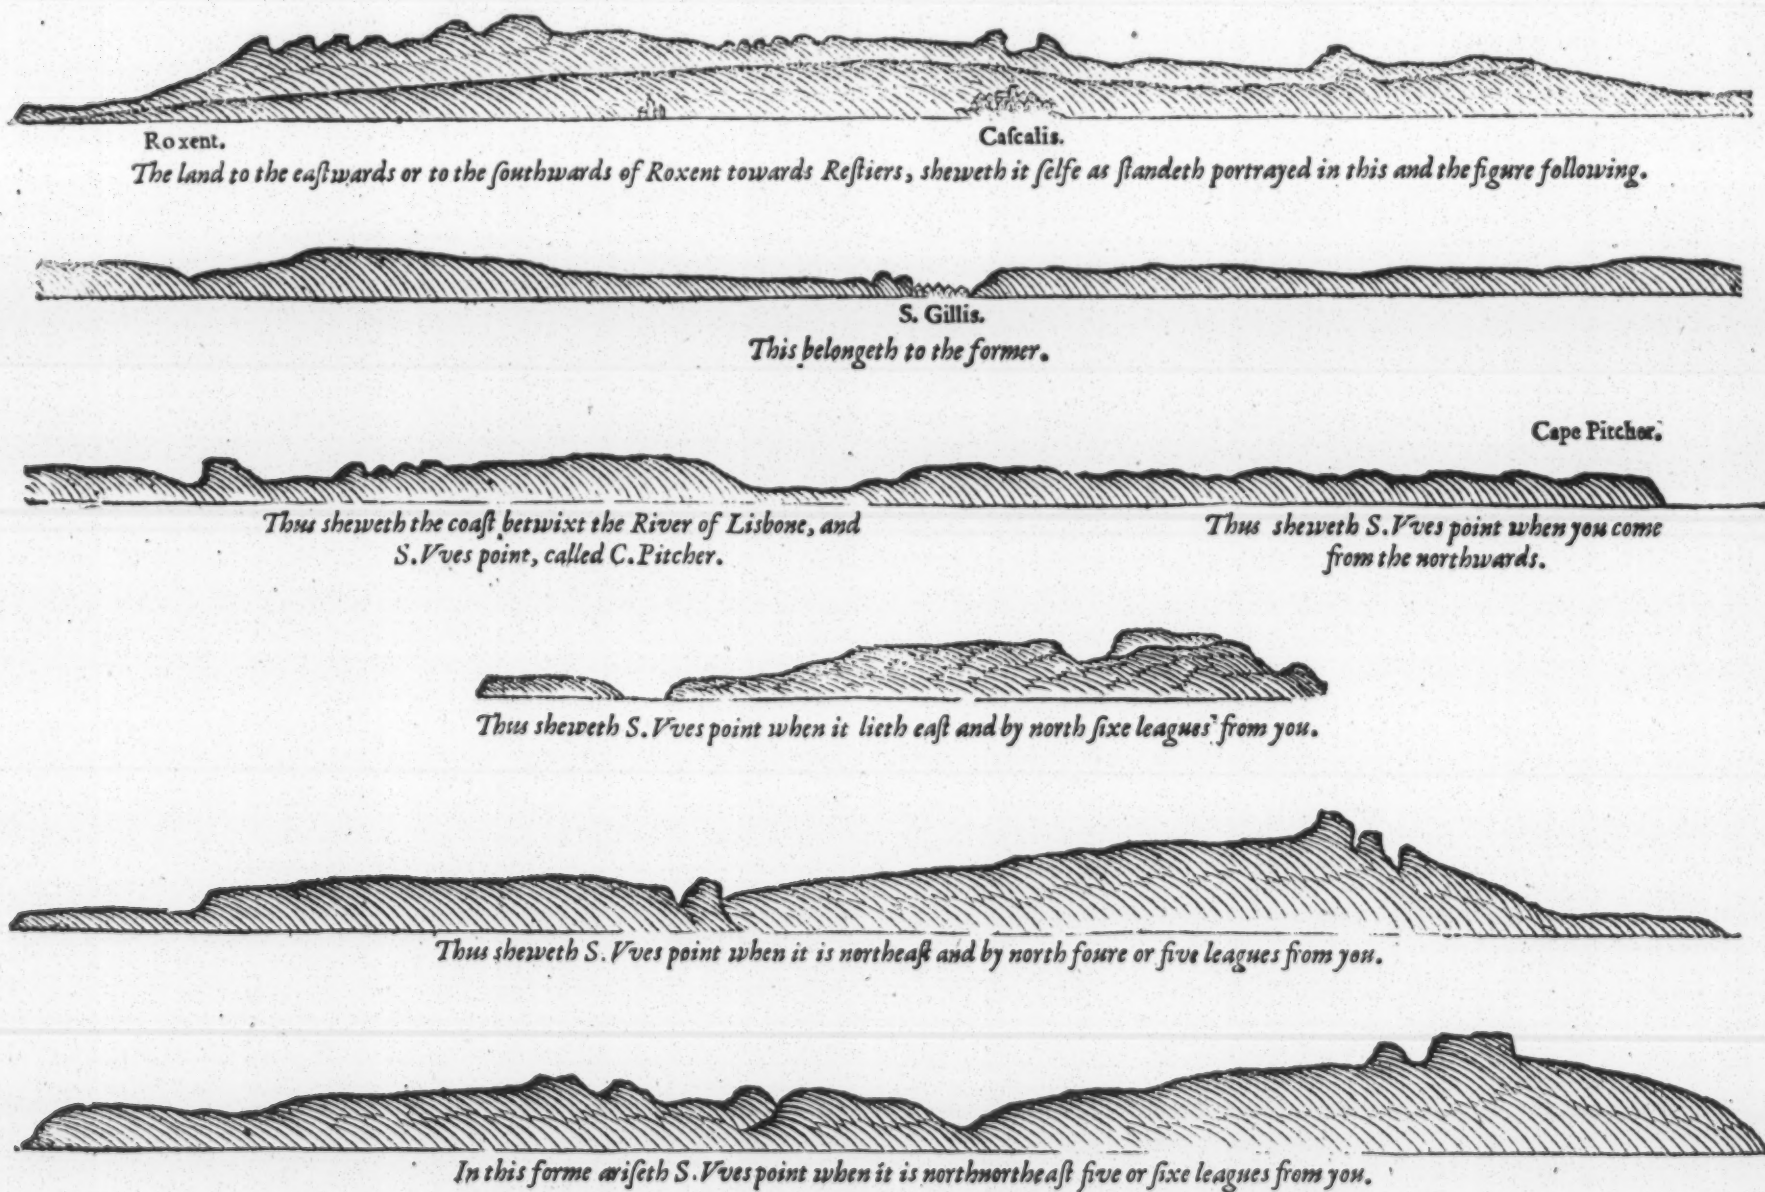 Roxent.
Caſcalis.
The land to the eaſtwards or to the ſouthwards of Roxent towards Reſtiers, sheweth it ſelfe as ſtandeth portrayed in this and the figure following.
S. Gillis.
This belongeth to the former.
Cape Pitcher.
Thus sheweth the coaſt betwixt the River of Lisbone, and
S. Vves point, called C. Pitcher.
Thus sheweth S. Vves point when you come
from the northwards.
Thus sheweth S. Vves point when it lieth eaſt and by north ſixe leagues from you.
Thus sheweth S. Vves point when it is northeaſt and by north foure or five leagues from you.
In this forme ariſeth S. Vves point when it is northnortheaſt five or ſixe leagues from you.